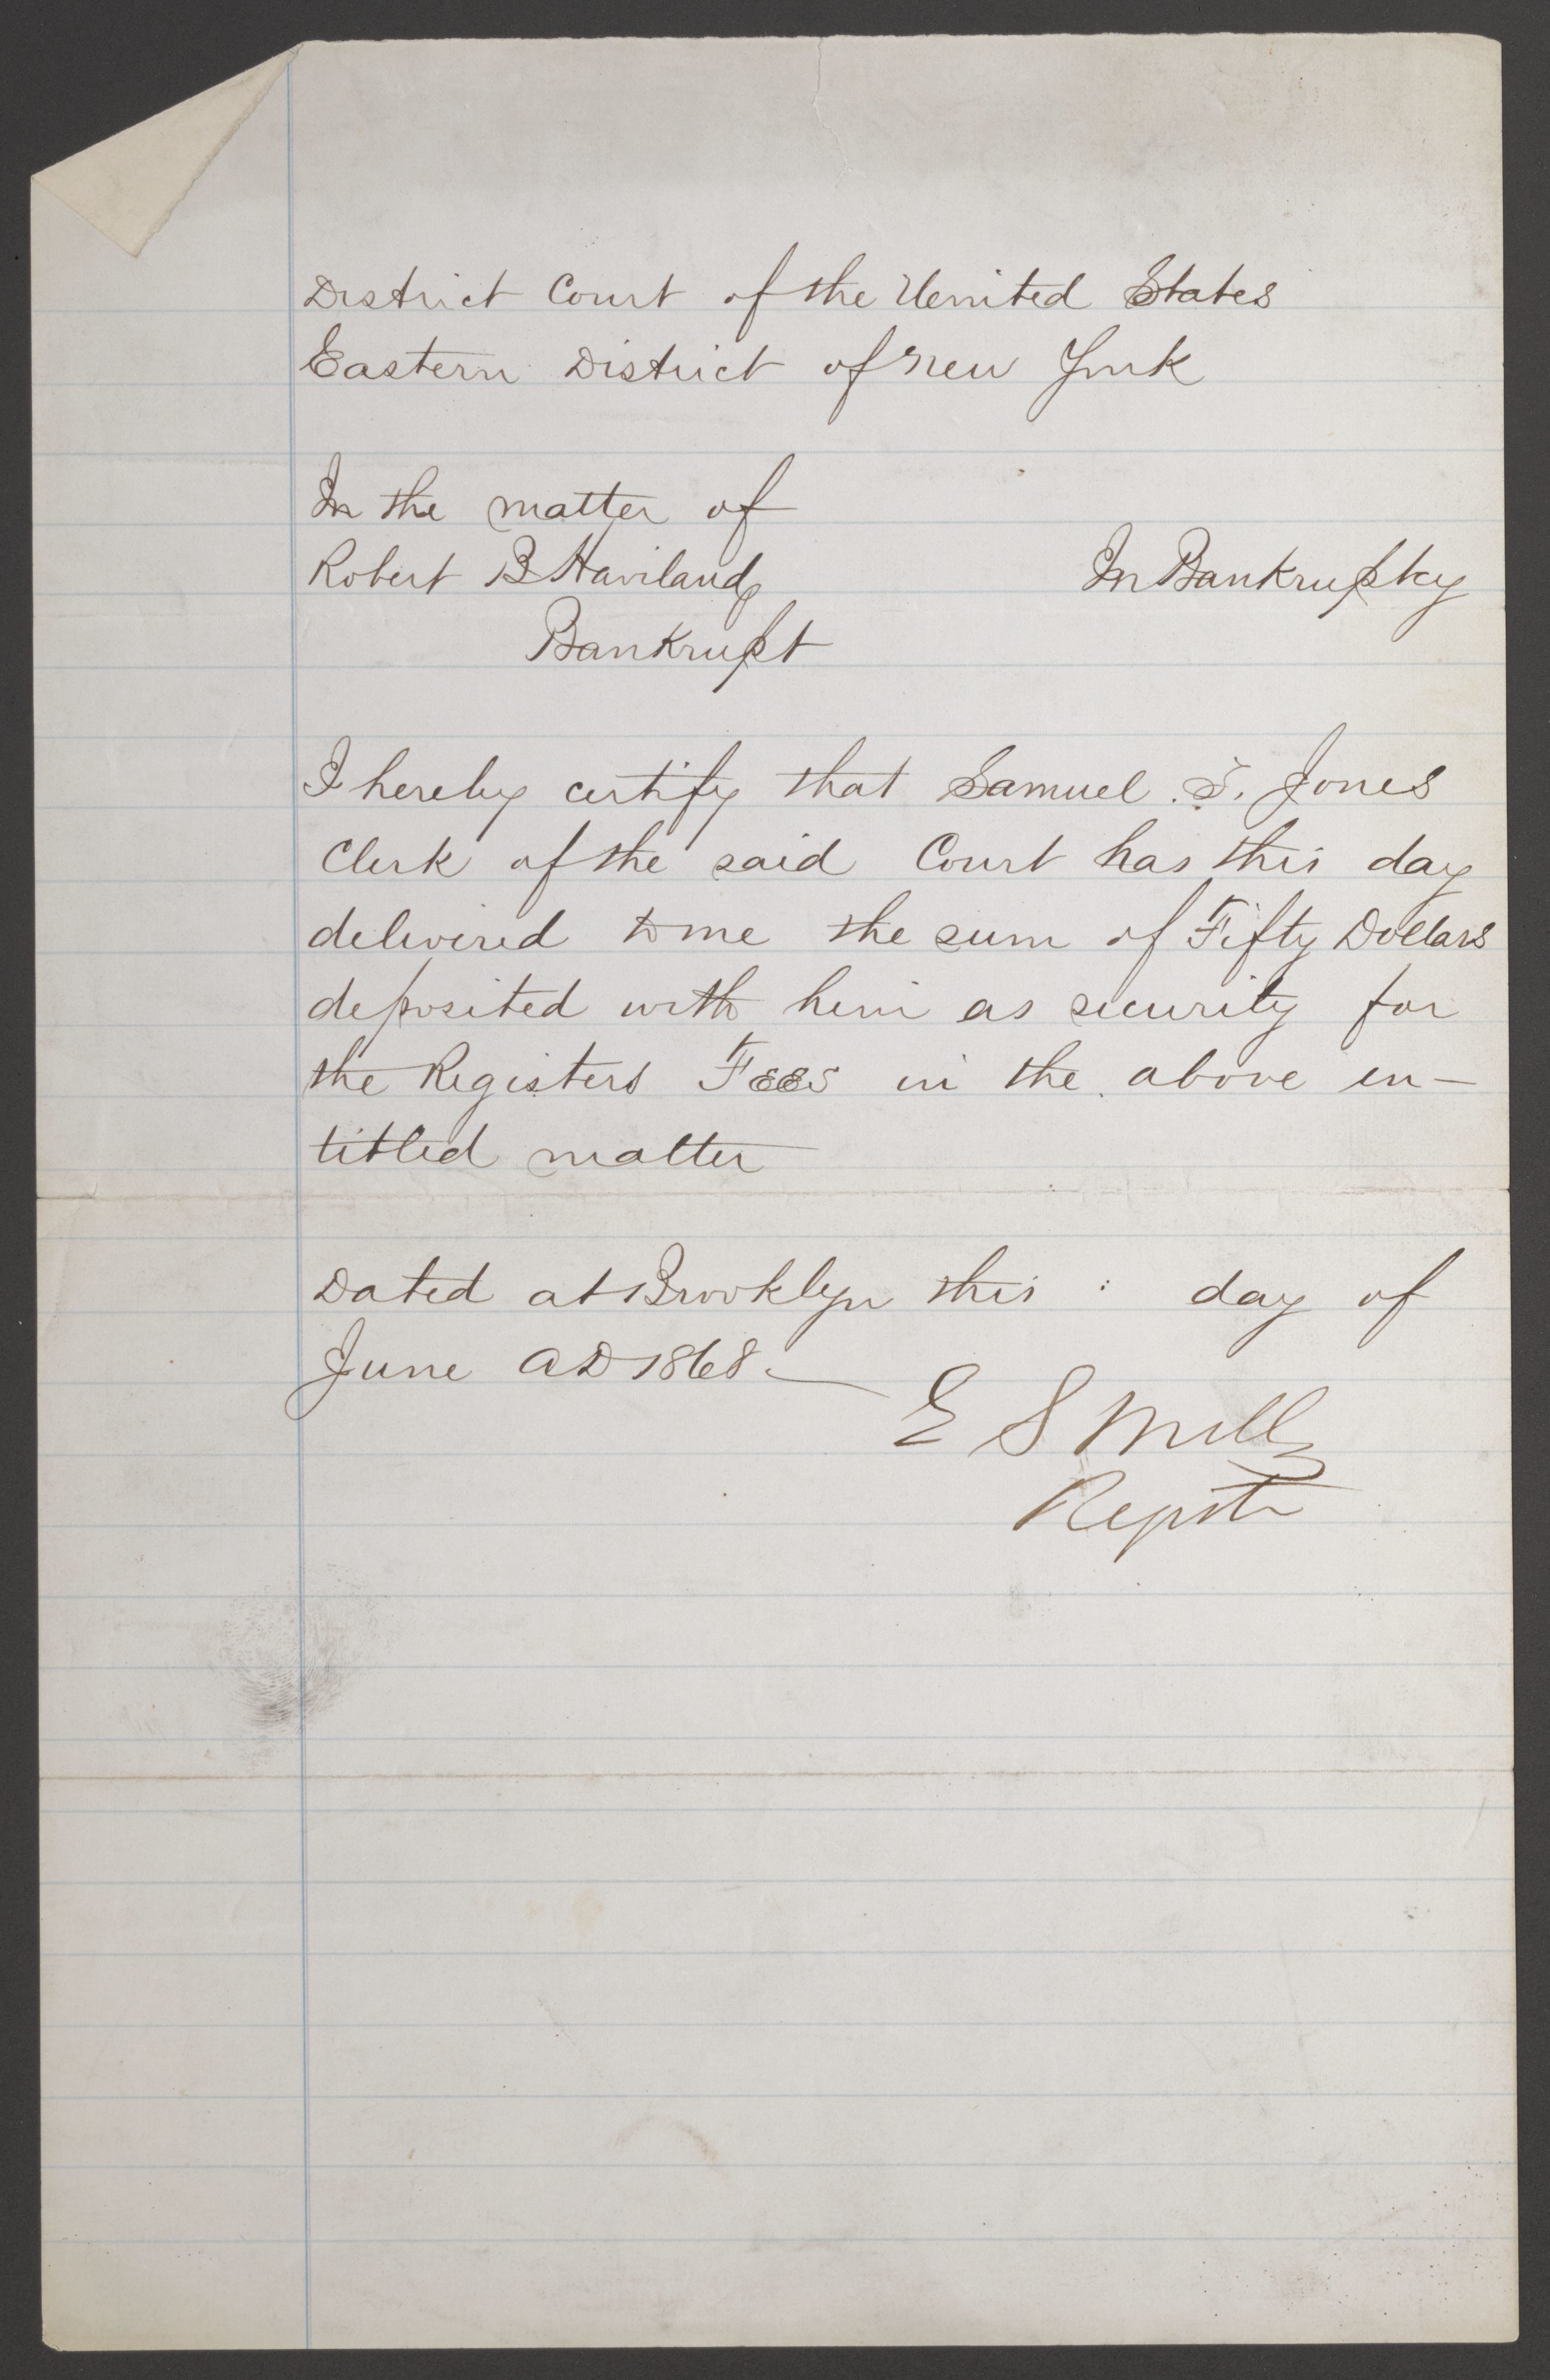 District Court of the United States
Eastern District of New York
In the matter of
Robert B Haviland
In Bankruptcy
Bankrupt
I hereby certify that Samuel T. Jones
Clerk of the said Court has this day
delivered to me the sum of Fifty Dollars
deposited with him as security for
the Registers Fees in the above en-
titled matter
Dated at Brooklyn this : day of
June AD 1868 —
E S Mills
Register